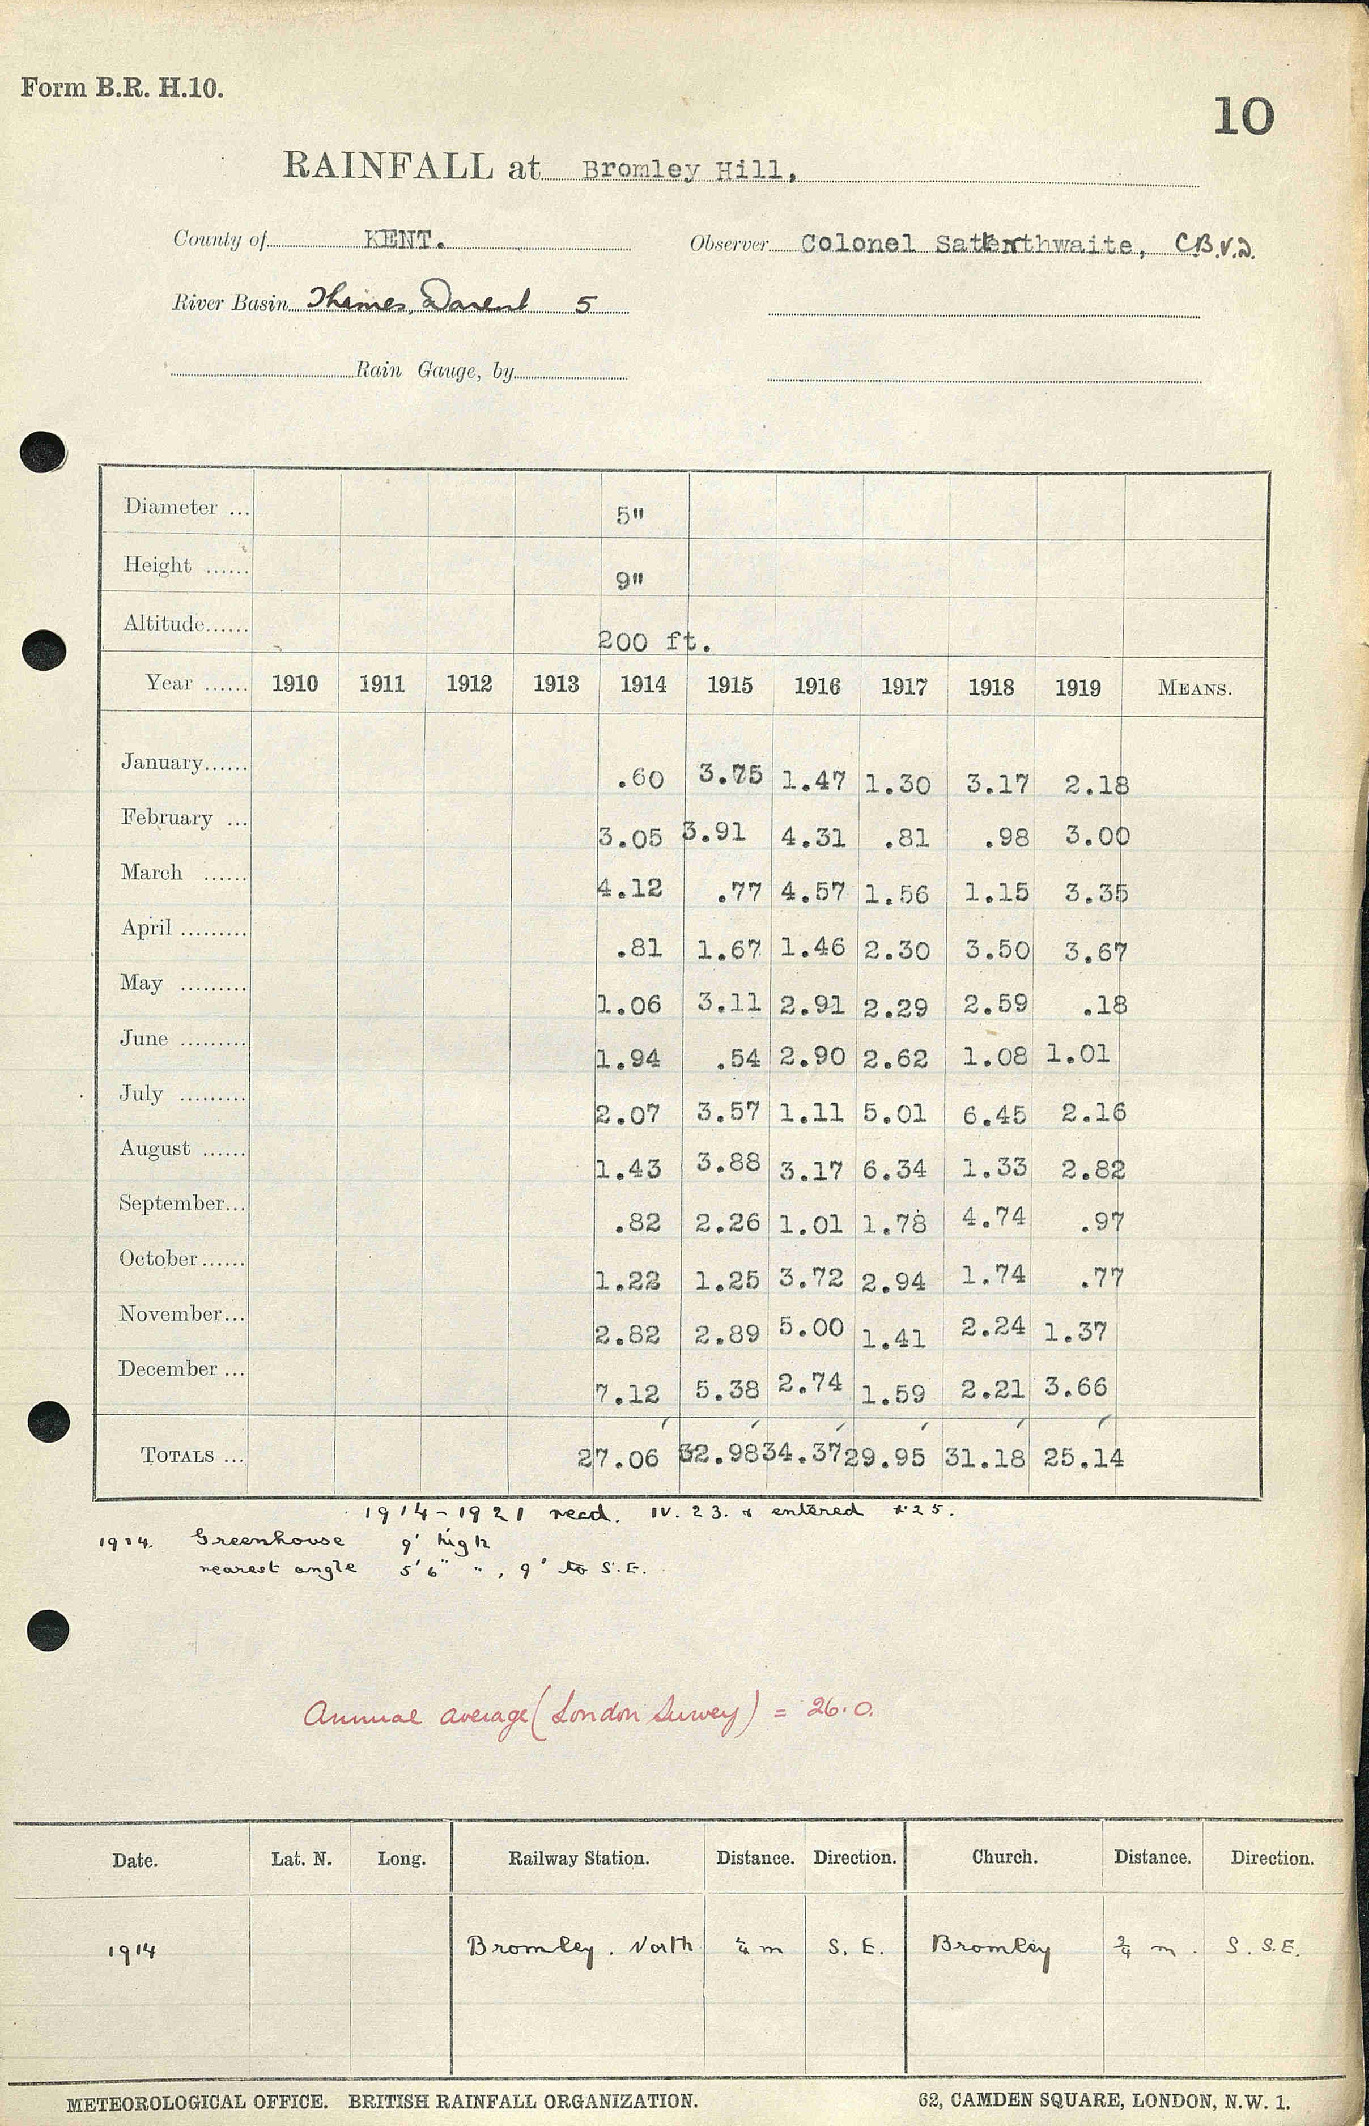 Form B.R. H.10.
10
RAINFALL at Bromley Hill,
County of KENT. Observer Colonel Satterthwaite, C.B.V.D.
River Basin Thames, Darent 5
Rain Gauge, by
Diameter ... 5"
Height ...... 9"
Altitude...... 200 ft.
Year ...... 1910 1911 1912 1913 1914 1915 1916 1917 1918 1919 MEANS.
January...... .60 3.75 1.47 1.30 3.17 2.18
February ... 3.05 3.91 4.31 .81 .98 3.00
March ...... 4.12 .77 4.57 1.56 1.15 3.35
April ......... .81 1.67 1.46 2.30 3.50 3.67
May ......... 1.06 3.11 2.91 2.29 2.59 .18
June ......... 1.94 .54 2.90 2.62 1.08 1.01
July ......... 2.07 3.57 1.11 5.01 6.45 2.16
August ...... 1.43 3.88 3.17 6.34 1.33 2.82
September... .82 2.26 1.01 1.78 4.74 .97
October...... 1.22 1.25 3.72 2.94 1.74 .77
November... 2.82 2.89 5.00 1.41 2.24 1.37
December ... 7.12 5.38 2.74 1.59 2.21 3.66
TOTALS ... 27.06 32.98 34.37 29.95 31.18 25.14
1914-1921 recd. IV. 23. & entered 25.
1914. Greenhouse 9' high
nearest angle 5'6" ", 9' to S.E.
Annual average (London Survey) = 26.0.
Date. Lat. N. Long. Railway Station. Distance. Direction. Church. Distance. Direction.
1914 Bromley. North m S. E. Bromley ¾ m. S. S.E.
METEOROLOGICAL OFFICE. BRITISH RAINFALL ORGANIZATION. 62, CAMDEN SQUARE, LONDON, N.W. 1.